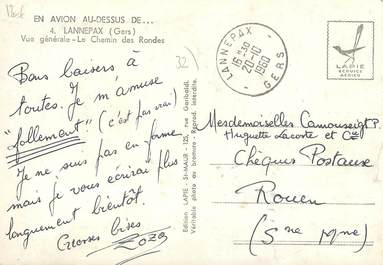 EN AVION AU-DESSUS DE...
4. LANNEPAX (Gers)
Vue générale - Le Chemin des Rondes
Bons baisers à
toutes. Je m'amuse
"follement" (c'est pas vrai)
Je ne suis pas en forme
mais je vous écrirai plus
longuement bientôt.
Grosses bises
32
Edition LAPIE - St-MAUR - 125, rue Garibaldi.
Véritable photo au bromure - Reprod. interdite.
LANNEPAX
16 H 30
20-10
1960
GERS
LAPIE
SERVICE
AERIEN
Mesdemoiselles Camouseigt P.
Huguette Lacoste et Cie
Chèques Postaux
Rouen
(Sne Mme)